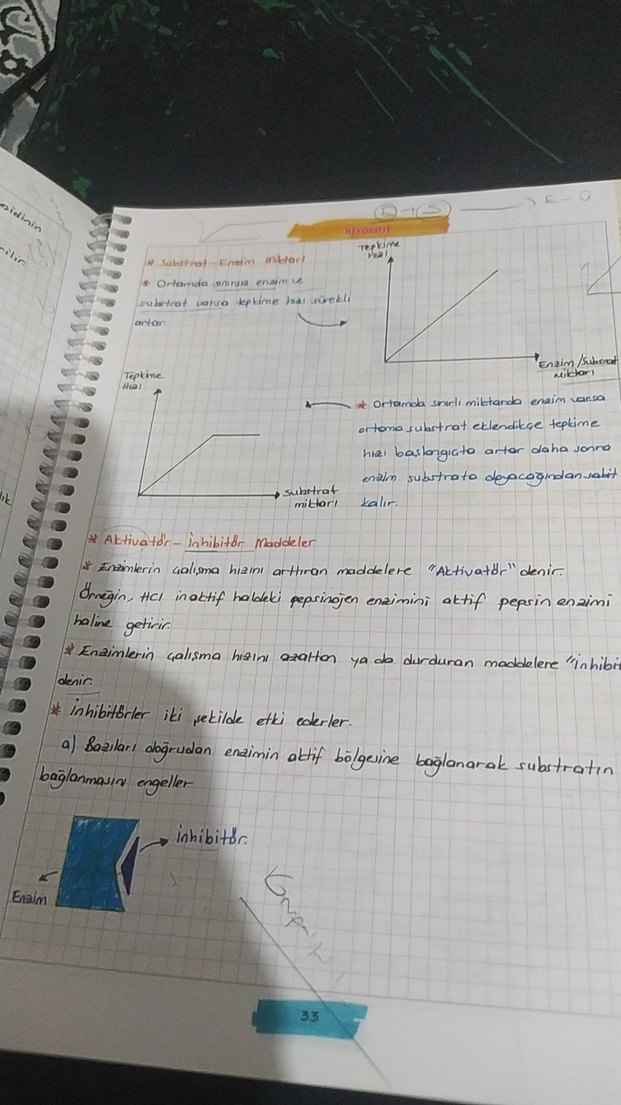 esidinin
cilir
BİYOLOJİ
* Substrat-Enzim Miktarı
* Ortamda sınırsız enzim ve
substrat varsa tepkime hızı sürekli
artar.
Tepkime
hızı
Enzim/Substrat
Miktarı
Tepkime
Hızı
substrat
miktarı
* Ortamda sınırlı miktarda enzim varsa
ortama substrat eklendikçe tepkime
hızı başlangıcta artar daha sonra
enzim substrata doyacağından sabit
kalır.
* Aktivatör - İnhibitör Maddeler
* Enzimlerin çalışma hızını arttıran maddelere "Aktivatör" denir.
Örneğin, HCl inaktif haldeki pepsinojen enzimini aktif pepsin enzimi
haline getirir.
* Enzimlerin çalışma hızını azaltan ya da durduran maddelere "inhibit
denir.
* İnhibitörler iki şekilde etki ederler.
a) Bazıları doğrudan enzimin aktif bölgesine bağlanarak substratın
bağlanmasını engeller
inhibitör.
Enzim
33